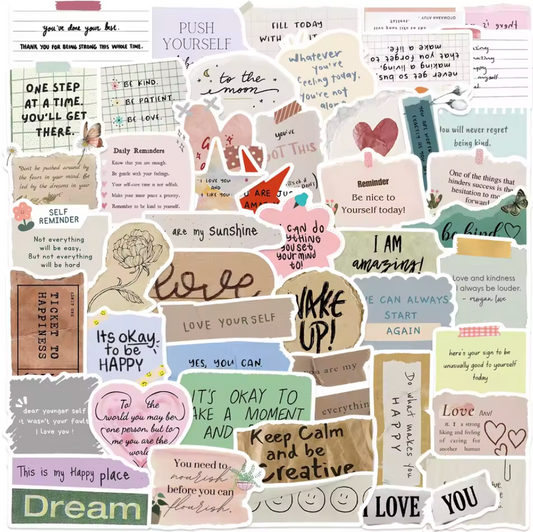 you've done your best.
THANK YOU FOR BEING STRONG THIS WHOLE TIME.
PUSH
YOURSELF
FILL TODAY
WITH
never get so busy
making a living
that you forget to
make a life.
ONE STEP
AT A TIME.
YOU'LL GET
THERE.
BE KIND.
BE PATIENT.
BE LOVE.
to the
moon
Whatever
you're
feeling today,
you're not
alone
You will never regret
being kind.
Don't be pushed around by
the fears in your mind. Be
led by the dreams in your
Daily Reminders
Know that you are enough.
Be gentle with your feelings.
Your self-care time is not selfish.
Make your inner peace a priority.
Remember to be kind to yourself.
I LOVE YOU
AND
I LIKE YOU
you've
GOT THIS
ARE JUST
Reminder
Be nice to
Yourself today!
One of the things that
hinders success is the
hesitation to move
forward
SELF
REMINDER
Not everything
will be easy,
But not everything
will be hard
are my sunshine
CAN DO
YTHING
YOU SET
YOUR MIND
TO!
I AM
amazing!
be kind
Love and kindness
always be louder.
- morgan love
TICKET TO
HAPPINESS
love
WAKE
UP!
WE CAN ALWAYS
START
AGAIN
LOVE YOURSELF
Its okay
to be
HAPPY
YES, YOU CAN.
are my
here's your sign to be
unusually good to yourself
today
dear younger self
it wasn't your fault
I love you!
To the
world you may be
one person, but to
me you are the
world
IT'S OKAY TO
TAKE A MOMENT
AND
everythin
Do what makes you
HAPPY
Love
is a strong
liking and feeling
of caring for
another
Keep Calm
and be
Creative
This is my Happy place
You need to
nourish
before you can
flourish.
Dream
I LOVE
YOU